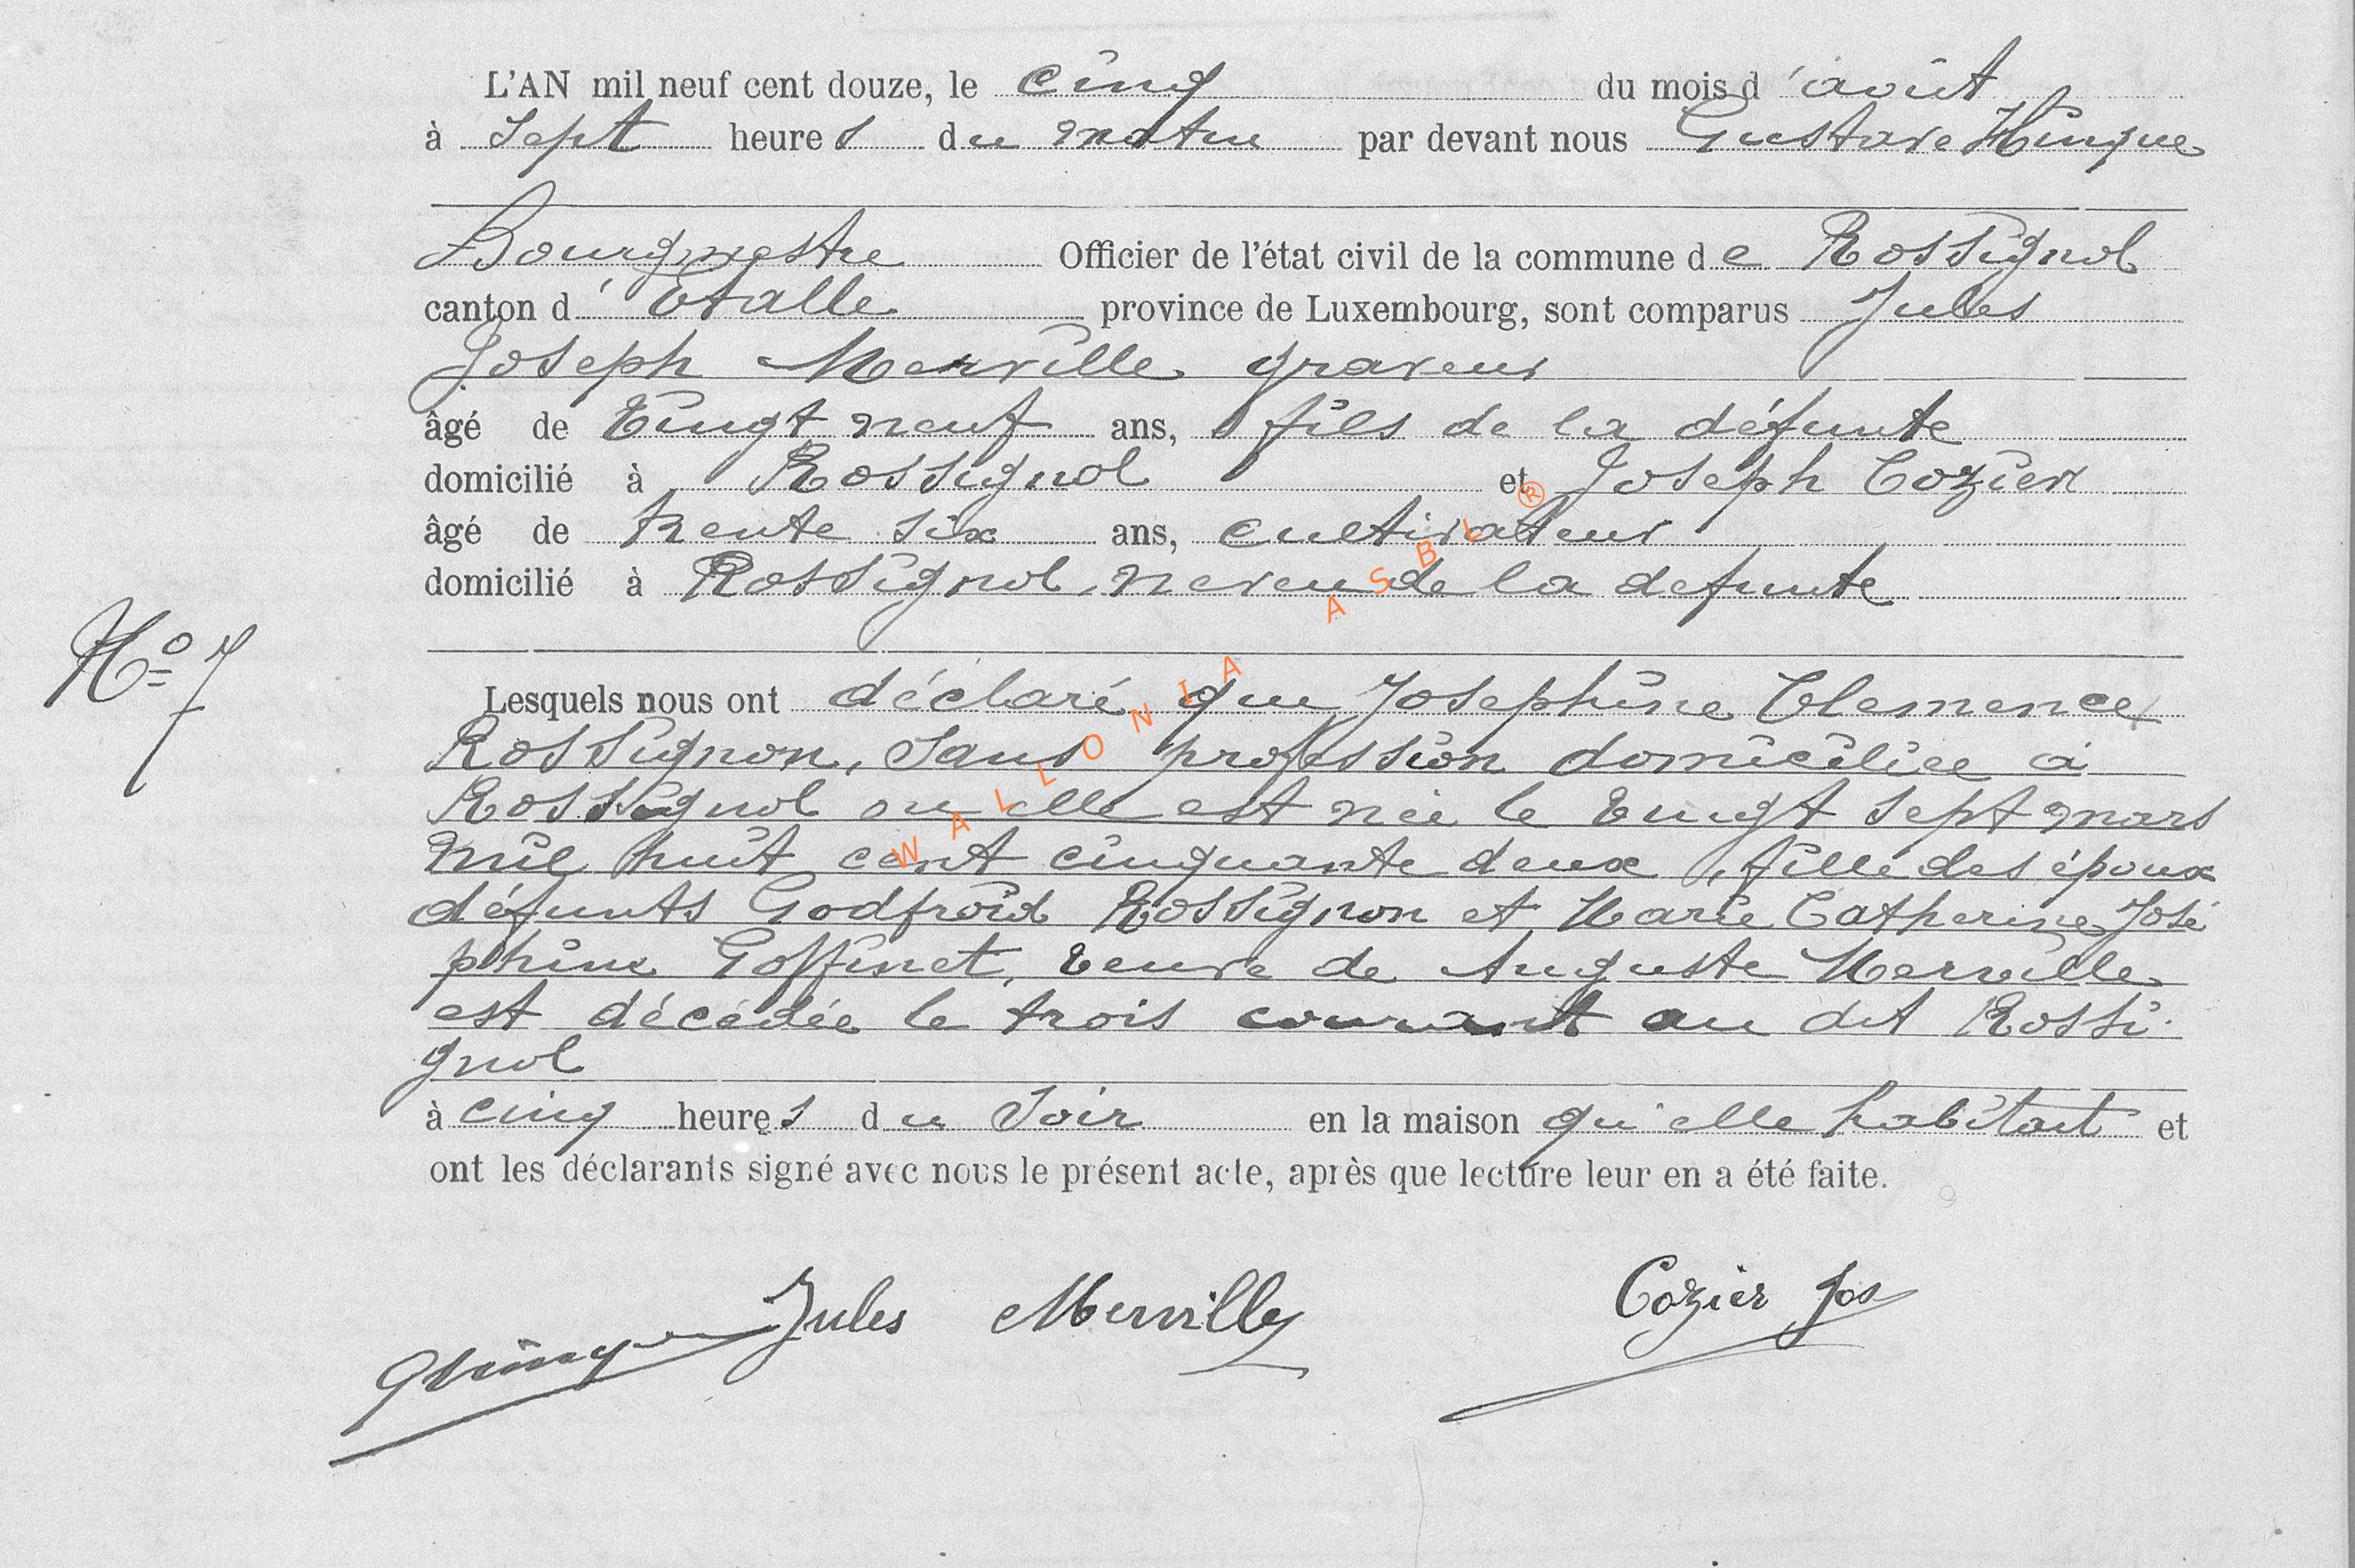 L'AN mil neuf cent douze, le cinq du mois d'août
à sept heures du matin par devant nous Gustave Hurique
Bourgmestre Officier de l'état civil de la commune de Rossignol
canton d'Etalle province de Luxembourg, sont comparus Jules
Joseph Merville graveur
âgé de Vingt neuf ans, fils de la défunte
domicilié à Rossignol et Joseph Cozier
âgé de trente six ans, cultivateur
domicilié à Rossignol, neveu de la defunte
No 7
Lesquels nous ont déclaré que Josephine Clemence
Rossignon, sans profession domiciliée à
Rossignol ou elle est née le vingt sept mars
mil huit cent cinquante deux, fille des époux
défunts Godfroid Rossignon et Marie Catherine José
phine Goffinet, veuve de Auguste Merville
est décédée le trois courant au dit Rossi-
gnol
à cinq heures du soir en la maison qu'elle habitait et
ont les déclarants signé avec nous le présent acte, après que lecture leur en a été faite.
Jules Merville
Cozier Jos
WALLONIA ASBL ®